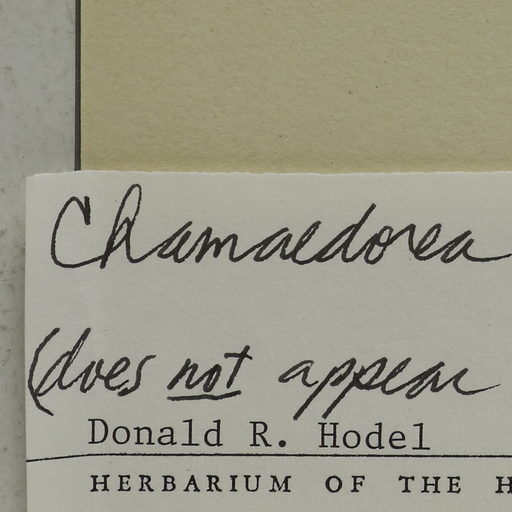 Chamaedorea
(does not appear
Donald R. Hodel
HERBARIUM OF THE H